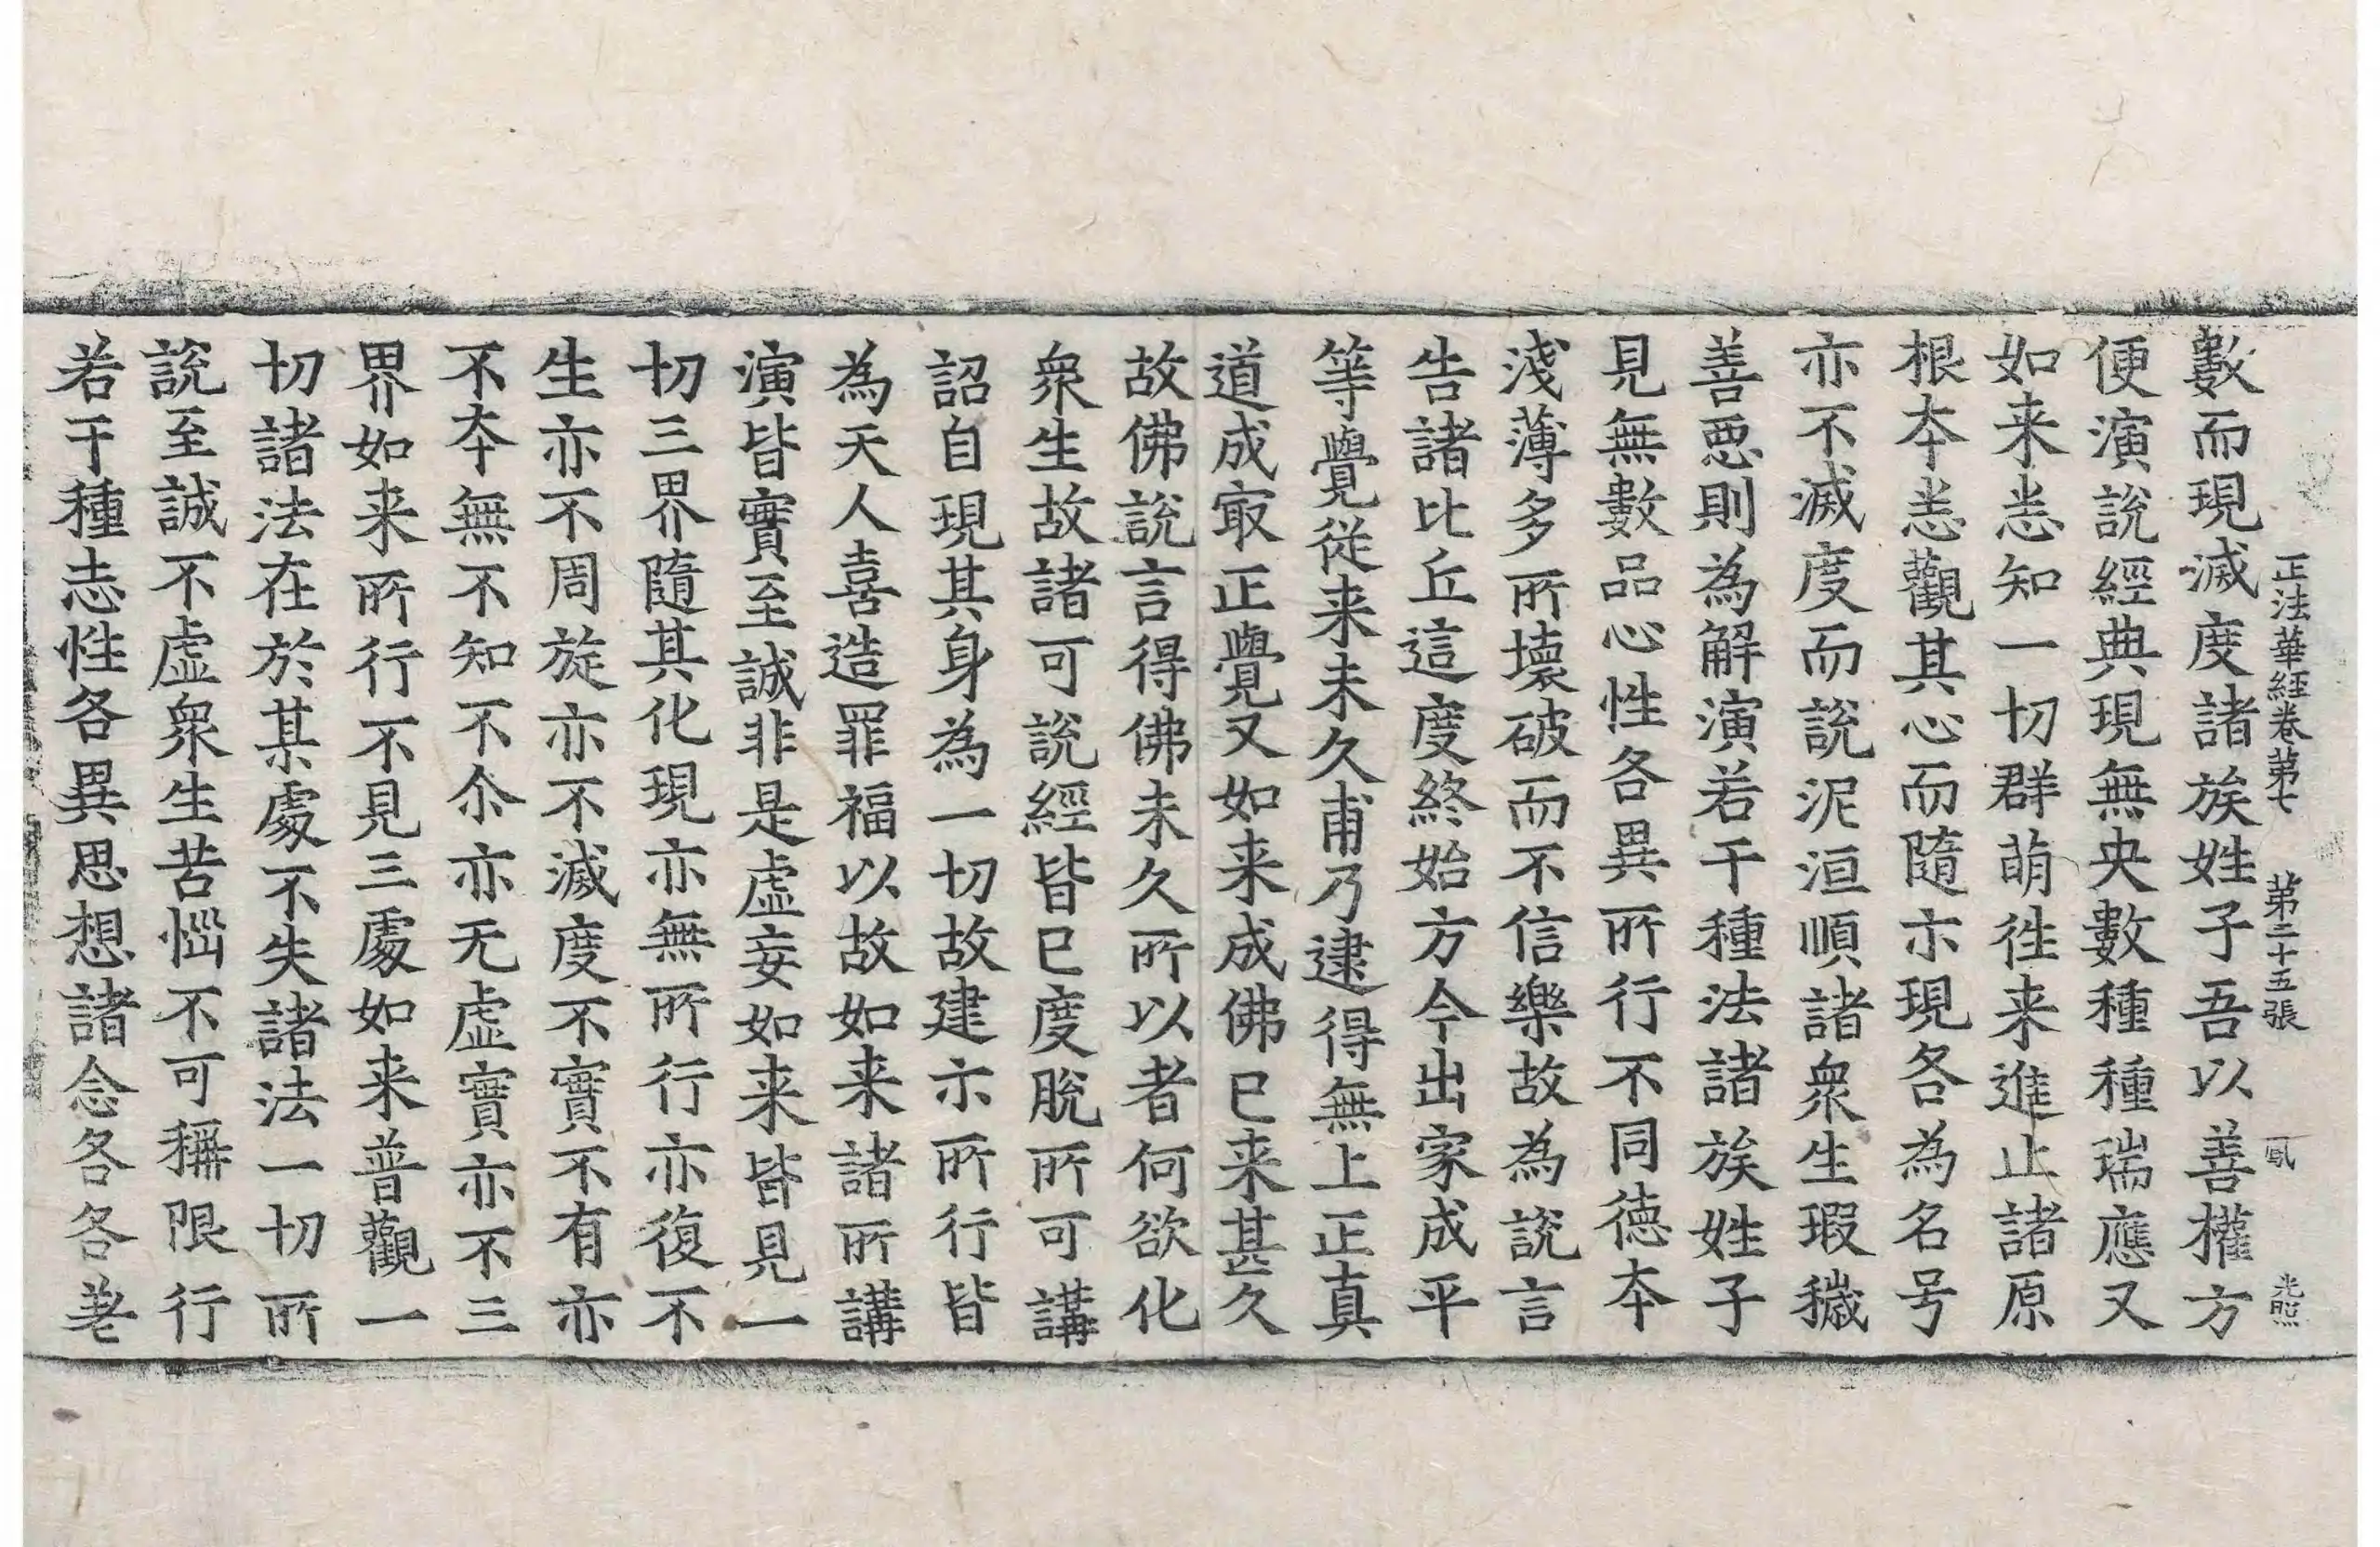 正法華経卷第七　第二十五張　鳳　光照
數而現滅度諸族姓子吾以善權方
便演說經典現無央數種種瑞應又
如来悉知一切群萌徃来進止諸原
根夲悉觀其心而隨示現各為名号
亦不滅度而說泥洹順諸衆生瑕穢
善惡則為解演若干種法諸族姓子
見無數品心性各異所行不同德夲
淺薄多所壞破而不信樂故為說言
告諸比丘這度終始方今出家成平
等覺從来未久甫乃逮得無上正真
道成㝡正覺又如来成佛已来甚久
故佛說言得佛未久所以者何欲化
衆生故諸可說經皆已度脫所可講
詔自現其身為一切故建示所行皆
為天人喜造罪福以故如来諸所講
演皆實至誠非是虛妄如来皆見一
切三界隨其化現亦無所行亦復不
生亦不周旋亦不滅度不實不有亦
不夲無不知不尒亦无虛實亦不三
界如来所行不見三處如来普觀一
切諸法在於某處不失諸法一切所
說至誠不虛衆生苦惱不可稱限行
若干種志性各異思想諸念各各差